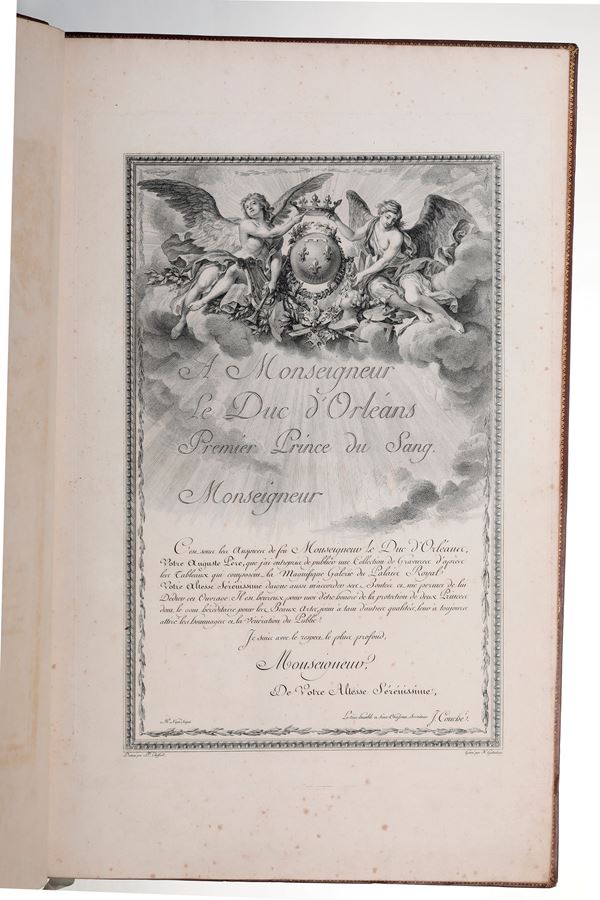 A Monseigneur
Le Duc d'Orléans
Premier Prince du Sang.
Monseigneur
C'est sous les Auspices de feu Monseigneur le Duc d'Orléans,
Votre Auguste Père, que j'ai entrepris de publier une Collection de Gravures d'après
les Tableaux qui composent la Magnifique Galerie du Palais Royal.
Votre Altesse Sérénissime daigne aussi m'accorder ses Bontés et me permet de lui
Dédier cet Ouvrage. Il est heureux pour moi d'être honoré de la protection de deux Princes
dont le goût héréditaire pour les Beaux Arts, joint à tant d'autres qualités, leur a toujours
attiré les hommages et la Vénération du Public.
Je suis avec le respect le plus profond,
Monseigneur,
De Votre Altesse Sérénissime,
Le très humble et très Obéissant Serviteur J. Couché.